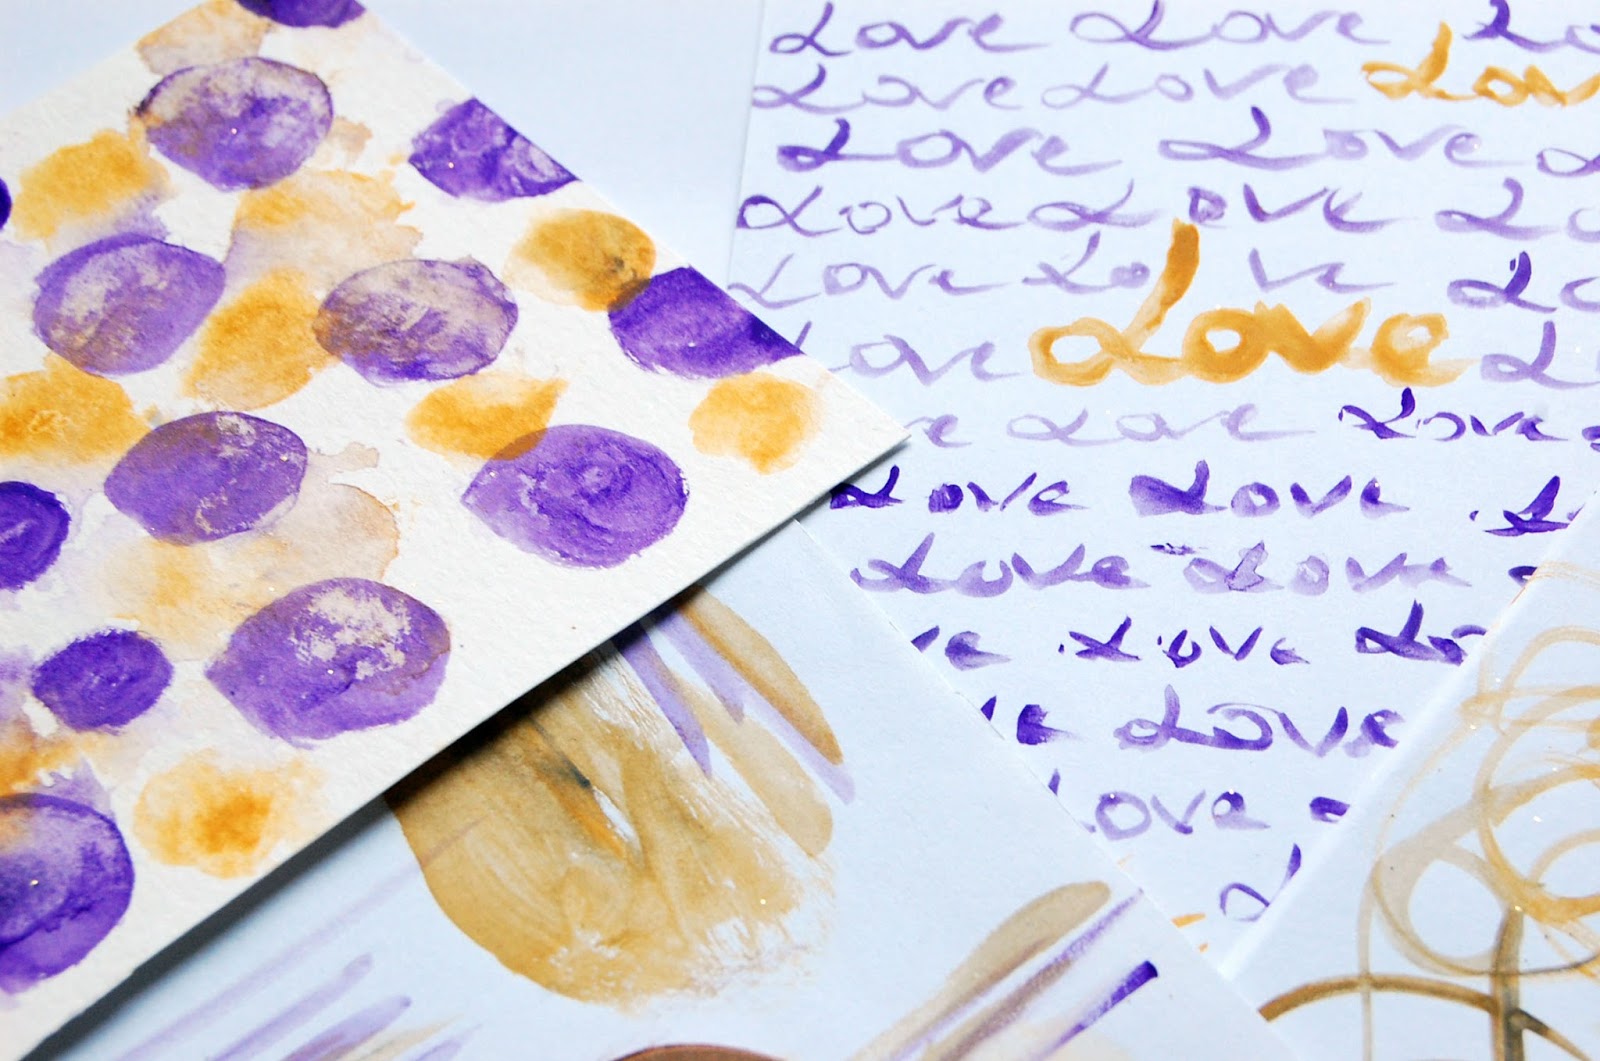 Love Love Lo
Love Love Lov
Love Love L
Love Love Lo
Love Lo ve Lo
Love Love Lo
e Love Love
Love Love L
Love Love
e Love Lo
e Love
Love
L